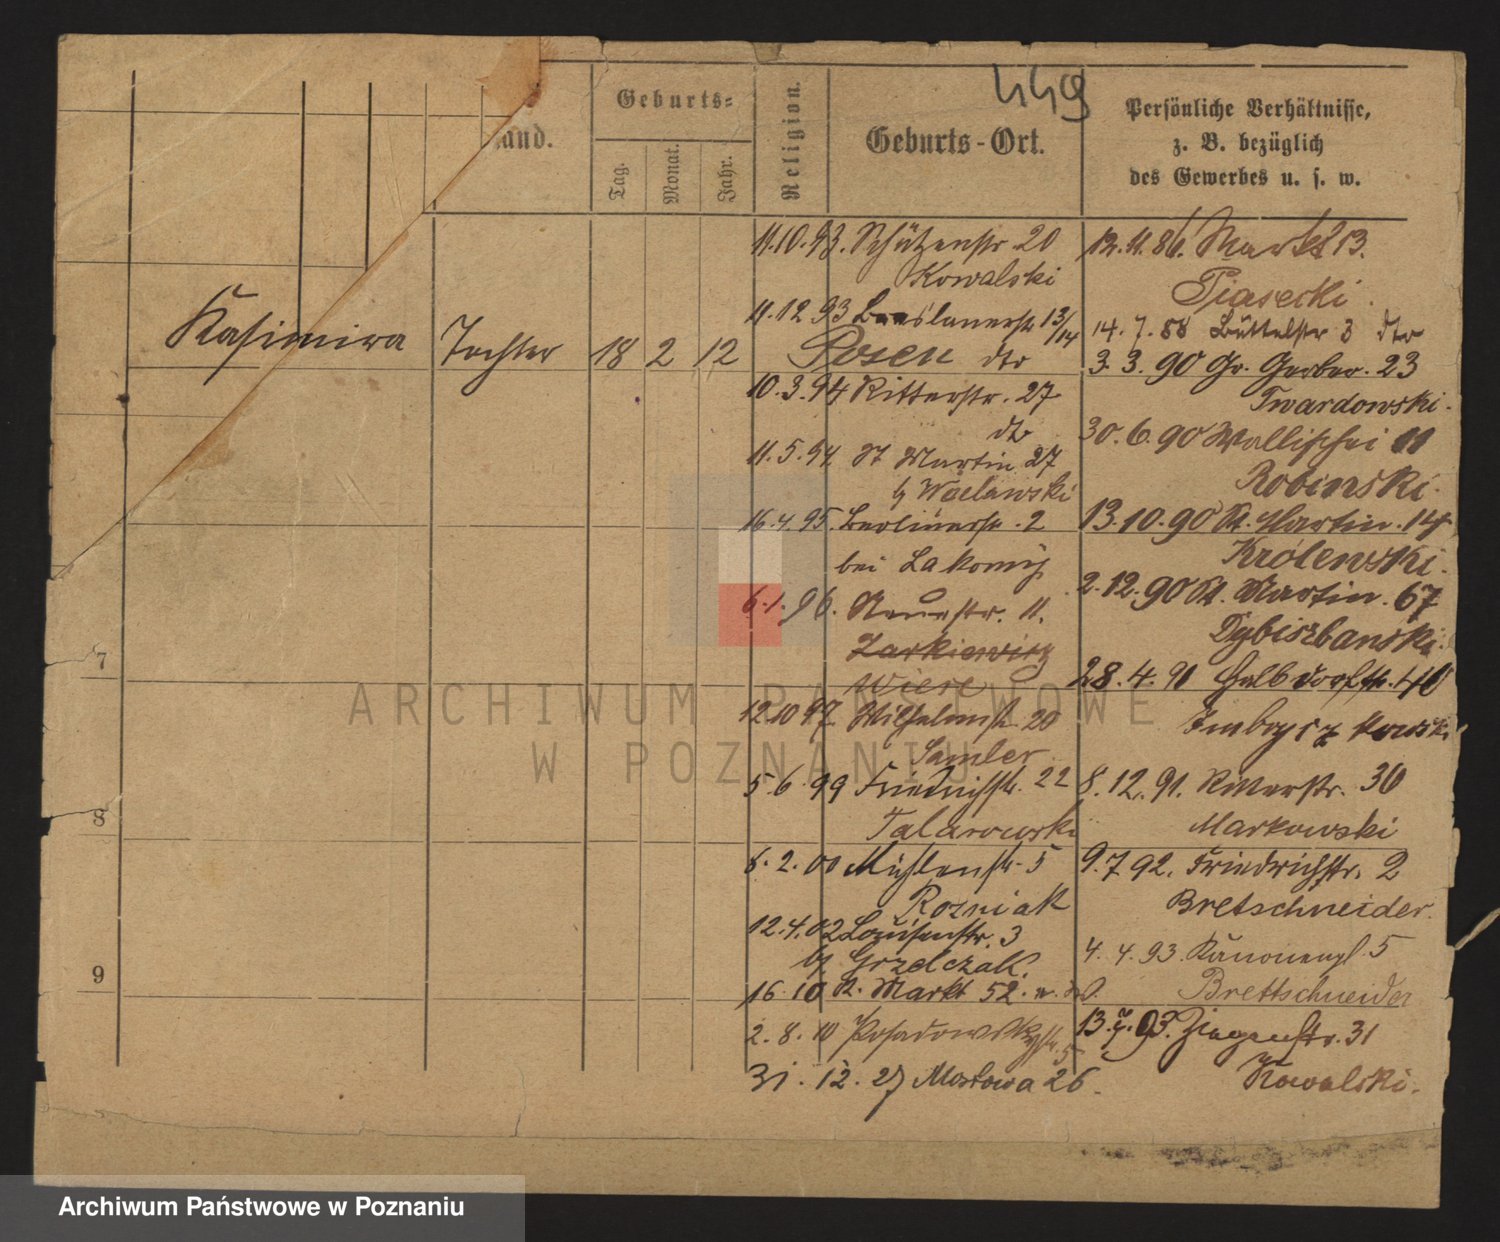 449
Stand.
Geburts=
Tag.
Monat.
Jahr.
Religion.
Geburts-Ort.
Persönliche Verhältnisse,
z. B. bezüglich
des Gewerbes u. s. w.
Kasimira Tochter 18 2 12 Posen
7
8
9
11.10.93. Schützenstr. 20
Kowalski
11.12.93 Breslauerstr. 13/14
dto
10.3.94 Ritterstr. 27
dto
11.5.94. St Martin 27
b/ Waclawski
16.4.95. Berlinerstr. 2
bei Lakomy
6.1.96. Neuestr. 11.
Zarkiewicz
Wiese
12.10.97. Wilhelmstr. 20
Samler
5.6.99 Friedrichstr. 22
Talarowski
6.2.00 Mühlenstr. 5
Rozniak
12.4.02 Louisenstr. 3
b/ Grzelczak.
16.10 A. Markt 52.
2.8.10 Posadowskystr. 5
31.12.27 Mostowa 26.
12.11.86. Markt 13.
Piasecki.
14.7.88 Büttelstr 3 dto
3.3.90 Gr. Gerber. 23
Twardowski.
30.6.90 Wallischei 11
Robinski.
13.10.90 St. Martin. 14
Królewski.
2.12.90 St. Martin. 67
Dybiszbanski.
28.4.91 Halbdorfstr. 40
8.12.91. Ritterstr. 30
Markowski
9.7.92. Friedrichstr. 2
Bretschneider.
4.4.93. Kanonenpl. 5
Brettschneider
13. 93. Ziegenstr. 31
Kowalski.
ARCHIWUM PAŃSTWOWE
W POZNANIU
Archiwum Państwowe w Poznaniu